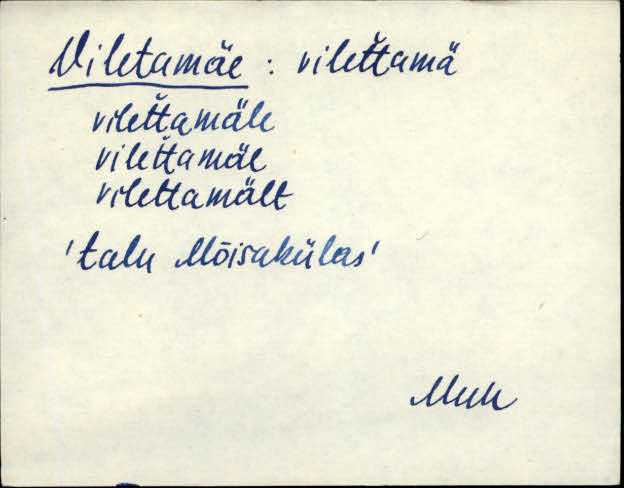 Viletamäe : vilet̆tamä
vilet̆tamäle
vilet̆tamäe
vilettamält
'talu Mõisakülas'
Muh